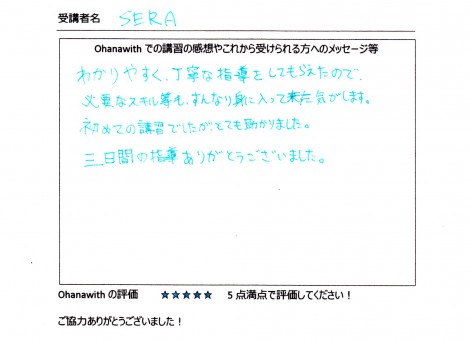 受講者名 SERA
Ohanawith での講習の感想やこれから受けられる方へのメッセージ等
わかりやすく、丁寧な指導をしてもらえたので、
必要なスキル等も、すんなり身に入って来た気がします。
初めての講習でしたが、とても助かりました。
三日間の指導ありがとうございました。
Ohanawith の評価 ★★★★★ 5 点満点で評価してください!
ご協力ありがとうございました!